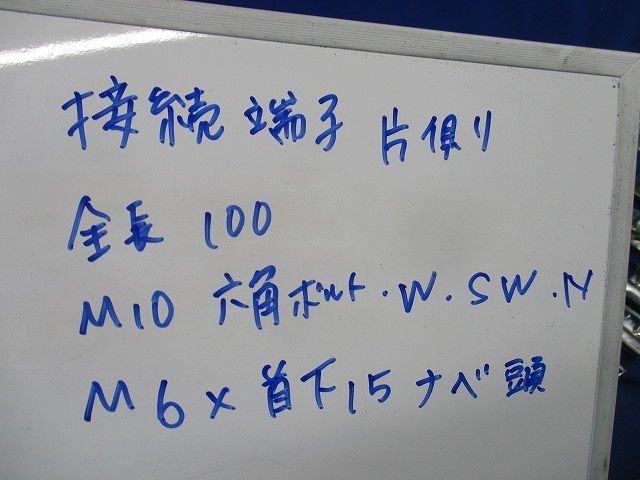 接続端子 片側
全長 100
M10 六角ボルト・W・SW・N
M6×首下15ナベ頭